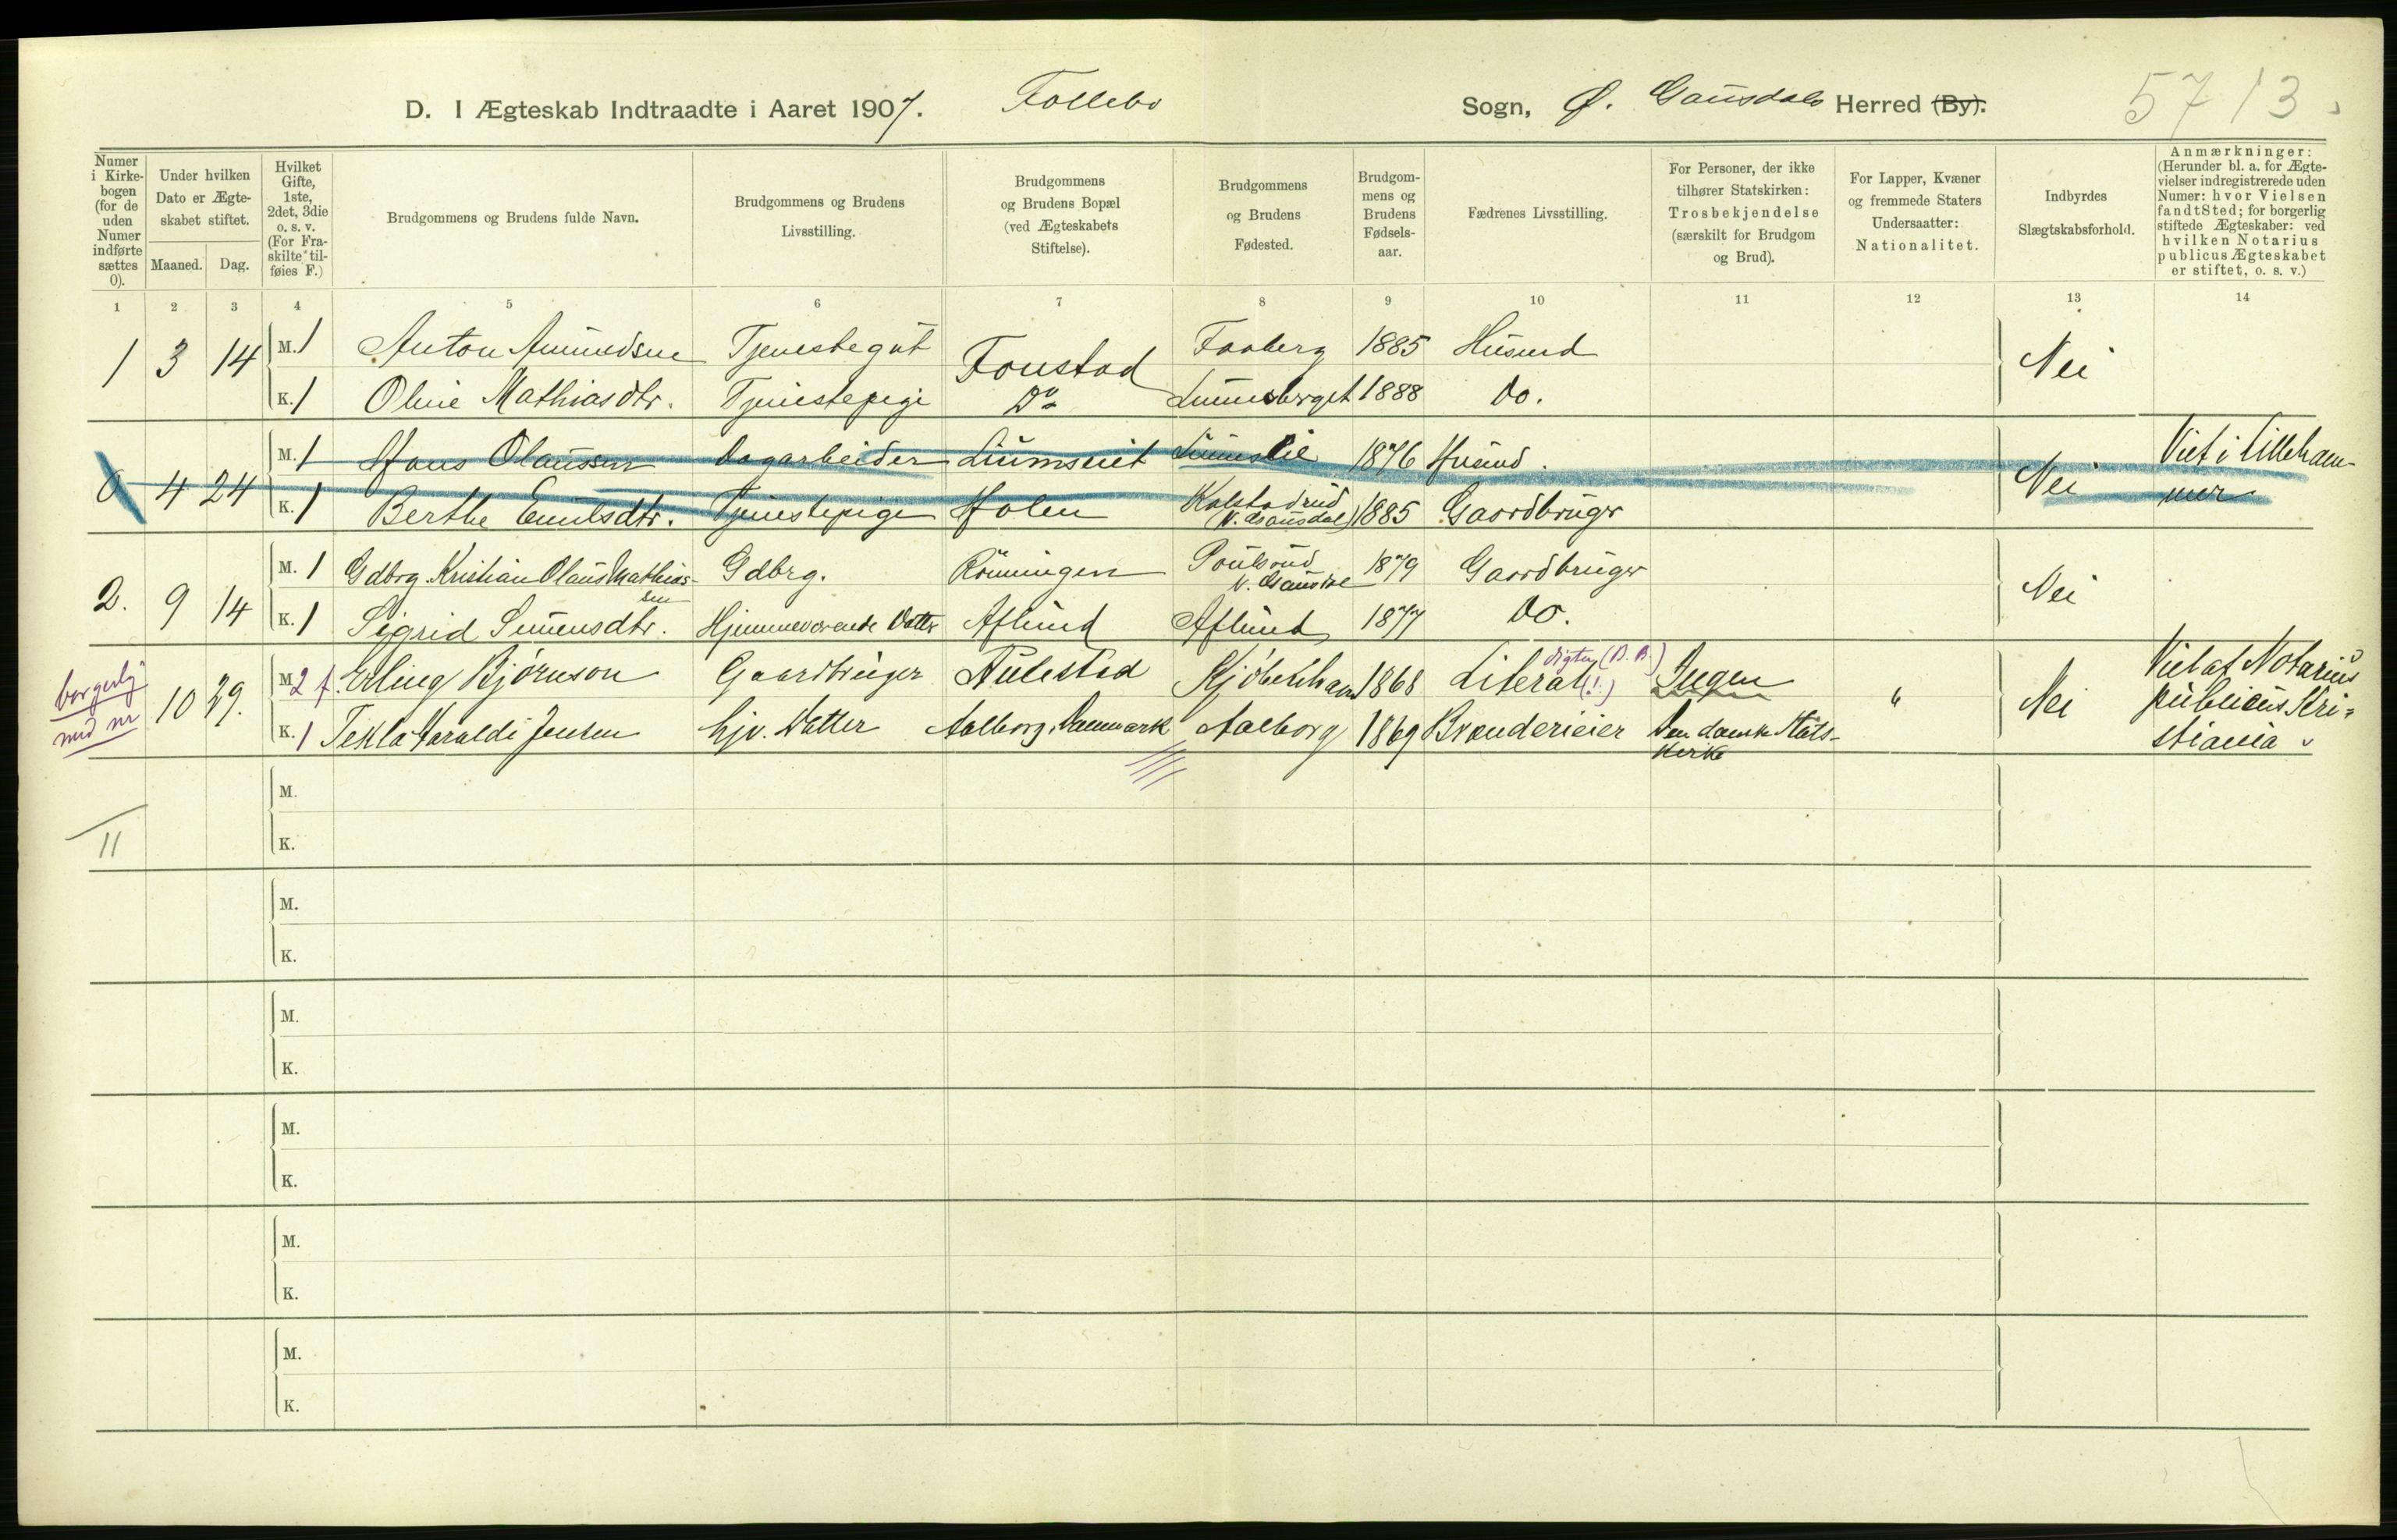 D. I Ægteskab Indtraadte i Aaret 1907. Follebo Sogn, Ø. Gausdals Herred (By). 5713
Numer i Kirkebogen (for de uden Numer indførte sættes 0).
Under hvilken Dato er Ægteskabet stiftet.
Maaned. Dag.
Hvilket Gifte, 1ste, 2det, 3die o. s. v. (For Fraskilte tilføies F.)
Brudgommens og Brudens fulde Navn.
Brudgommens og Brudens Livsstilling.
Brudgommens og Brudens Bopæl (ved Ægteskabets Stiftelse).
Brudgommens og Brudens Fødested.
Brudgommens og Brudens Fødselsaar.
Fædrenes Livsstilling.
For Personer, der ikke tilhører Statskirken: Trosbekjendelse (særskilt for Brudgom og Brud).
For Lapper, Kvæner og fremmede Staters Undersaatter: Nationalitet.
Indbyrdes Slægtskabsforhold.
Anmærkninger: (Herunder bl. a. for Ægtevielser indregistrerede uden Numer: hvor Vielsen fandt Sted; for borgerlig stiftede Ægteskaber: ved hvilken Notarius publicus Ægteskabet er stiftet, o. s. v.)
1 2 3 4 5 6 7 8 9 10 11 12 13 14
1 3 14 M. 1 Anton Amundsen Tjenestegut Fonstad Faaberg 1885 Husmd Nei
K. 1 Oline Mathiasdtr. Tjenestepige Do 1888 Do.
0 4 24 M. 1 Hans Olaussen Dagarbeider 1876 Husmd. Nei Viet i Lilleham-
K. 1 Berthe Emilsdtr. Tjenestepige Holen Kalstadrud (V. Gausdal) 1885 Gaardbruger mer
2. 9 14 M. 1 Gdbrg. Kristian Olaus Mathias- Gdbrg. Rönningen V. Gausdal 1879 Gaardbruger Nei
sen
K. 1 Sigrid Simensdtr. Hjemmeværende Datter Aflund Aflund 1877 Do.
borgerlig
10 29. M. 2 f. Erling Bjørnson Gaardbruger Aulestad Kjøbenhavn 1868 Literat (!) digter (B. B.) Ingen " Nei Viet af Notarius
publicus Kri-
stiania
K. 1 Tekla Haraldi Jensen hjv. Datter Aalborg, Danmark Aalborg 1869 Brænderieier Den danske Stats-
kirke
M.
K.
11
M.
K.
M.
K.
M.
K.
M.
K.
M.
K.